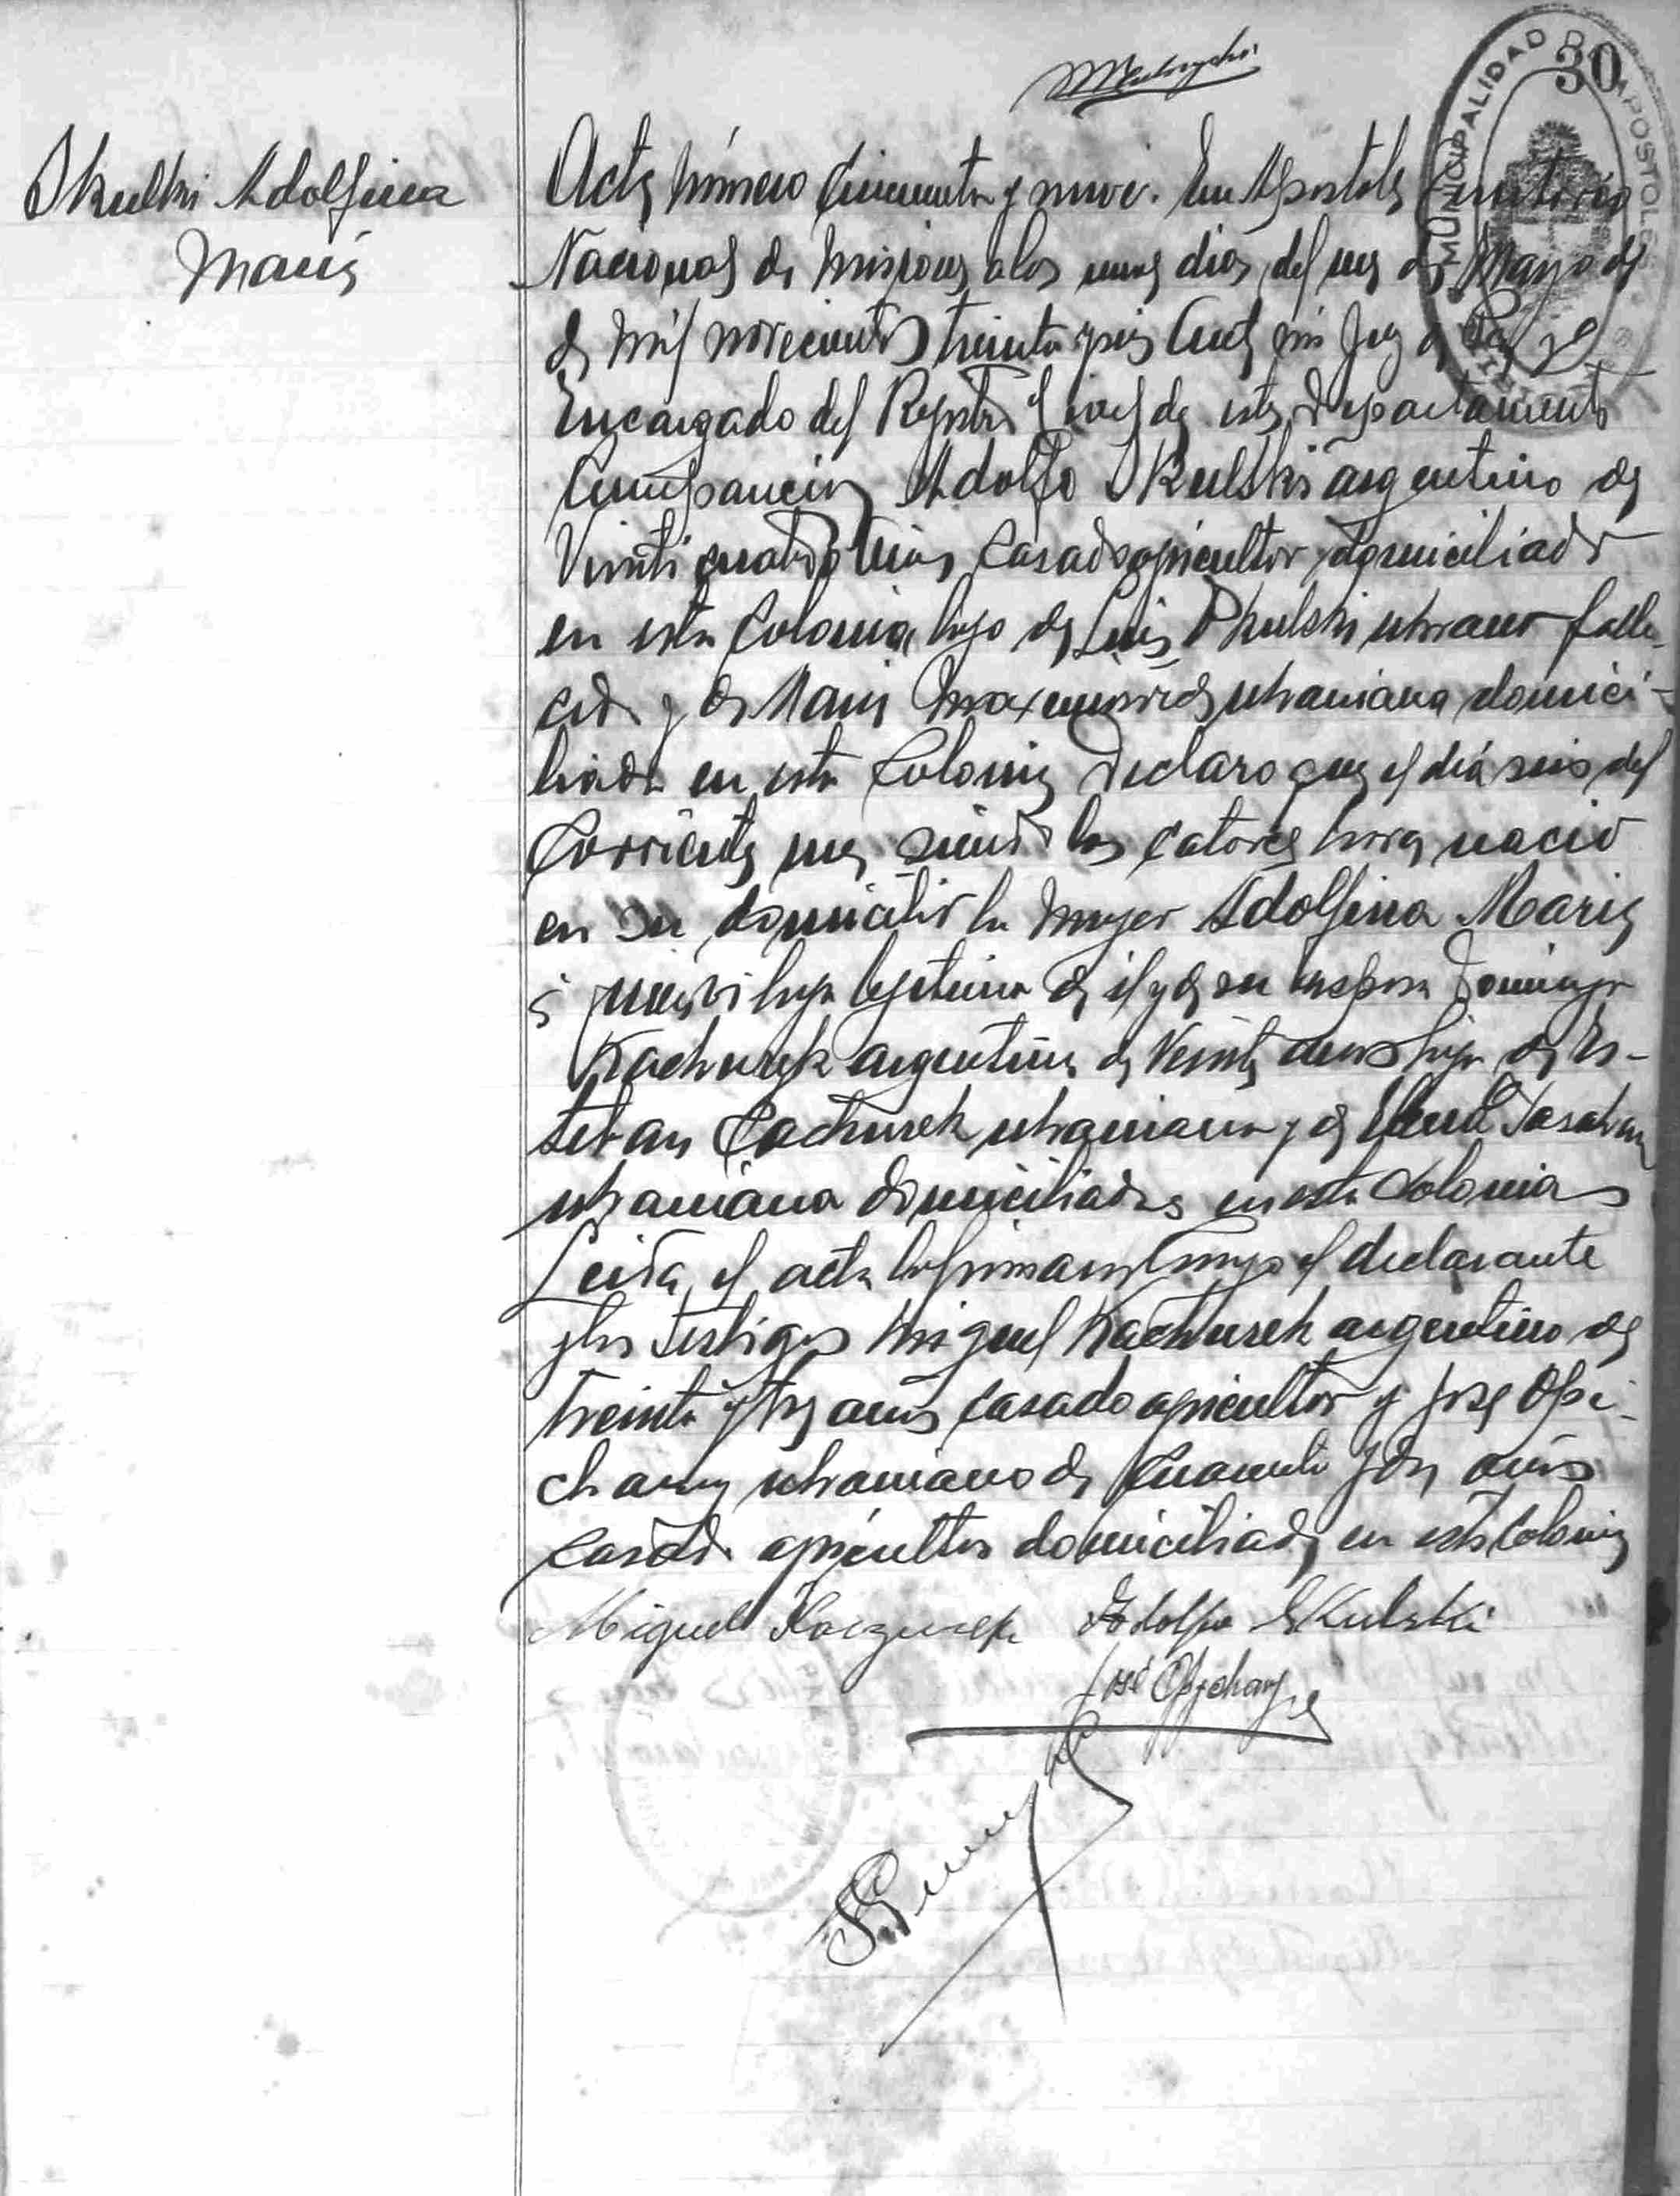 30
MUNICIPALIDAD DE APOSTOLES
Skulski Adolfina
Maria
Acta número cincuenta y nueve. En Apostoles territorio
Nacional de Misiones a los nueve dias del mes de Mayo de
de mil novecientos treinta y seis Ante mi Juez de Paz
Encargado del Registro Civil de este departamento
Comparecio Adolfo Skulski argentino de
Veinti cuatro años casado agricultor domiciliado
en esta Colonia hijo de Luis Skulski ukrano falle-
cido y de Maria ukraniana domici-
liada en esta Colonia Declaro que el dia seis del
Corriente mes siendo las catorce horas nació
en su domicilio la mujer Adolfina Maria
hija legitima de el y de su esposa Dominga
Kachurek argentina de Veinte años hija de Es-
teban Cachurek ukraniano y de
ukraniana domiciliados en esta Colonia
Leida el acta la firmaron conmigo el declarante
y los testigos Miguel Kachurek argentino de
treinta y tres años casado agricultor y José Opi-
chany ukraniano de cuarenta y dos años
casado agricultor domiciliados en esta Colonia
Miguel Kaczurek Adolfo Skulski
José Opychany